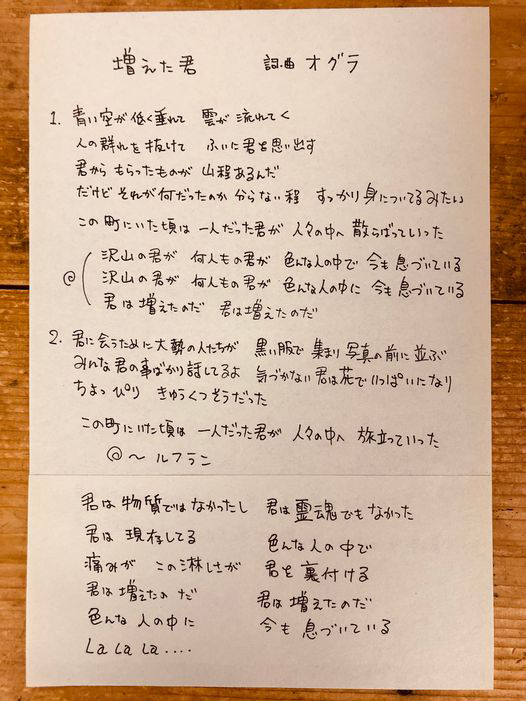 増えた君 詞・曲 オグラ
1. 青い空が低く垂れて 雲が流れてく
人の群れを抜けて ふいに君を思い出す
君からもらったものが 山程あるんだ
だけどそれが何だったのか 分らない程 すっかり身についてるみたい
この町にいた頃は 一人だった君が 人々の中へ 散らばっていった
沢山の君が 何人もの君が 色んな人の中で 今も息づいている
@ 沢山の君が 何人もの君が 色んな人の中に 今も息づいている
君は増えたのだ 君は増えたのだ
2. 君に会うために大勢の人たちが 黒い服で集まり写真の前に並ぶ
みんな君の事ばかり話してるよ 気づかない君は花でいっぱいになり
ちょっぴり きゅうくつそうだった
この町にいた頃は 一人だった君が 人々の中へ 旅立っていった
@〜ルフラン
君は物質ではなかったし 君は霊魂でもなかった
君は現存してる 色んな人の中で
痛みが この淋しさが 君を裏付ける
君は増えたのだ 君は増えたのだ
色んな人の中に 今も息づいている
La La La ....